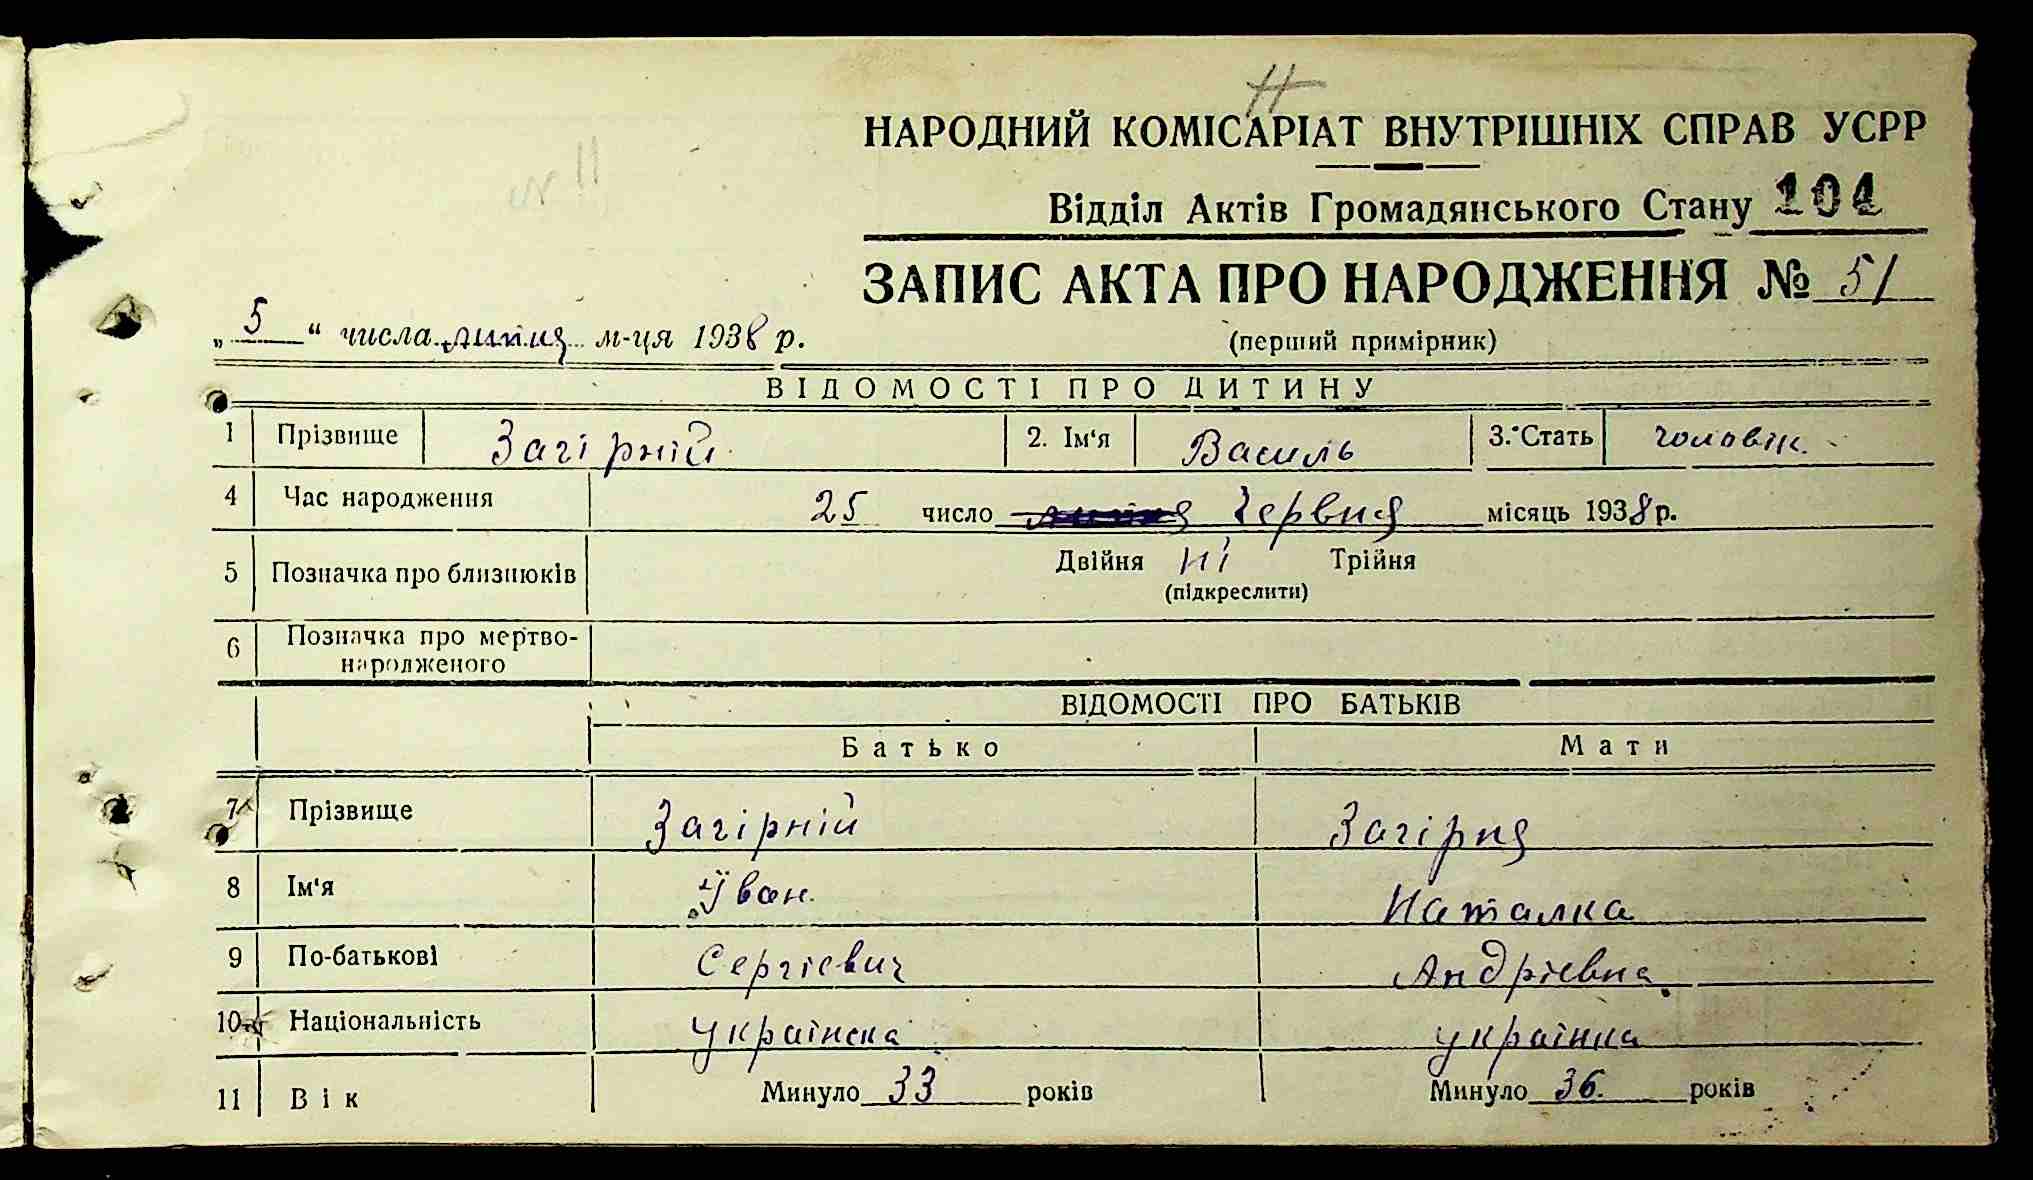 Н
НАРОДНИЙ КОМІСАРІАТ ВНУТРІШНІХ СПРАВ УСРР
№ 11
Відділ Актів Громадянського Стану 104
ЗАПИС АКТА ПРО НАРОДЖЕННЯ № 51
„ 5 “ числа липня м-ця 1938 р.
(перший примірник)
ВІДОМОСТІ ПРО ДИТИНУ
1 Прізвище Загірній 2. Ім‘я Василь 3. Стать чоловік.
4 Час народження 25 число липня червня місяць 1938 р.
5 Позначка про близнюків Двійня ні Трійня
(підкреслити)
6 Позначка про мертво-
народженого
ВІДОМОСТІ ПРО БАТЬКІВ
Батько Мати
7 Прізвище Загірній Загірня
8 Ім‘я Іван. Наталка
9 По-батькові Сергієвич Андрієвна
10 Національність українська українка
11 Вік Минуло 33 років Минуло 36. років